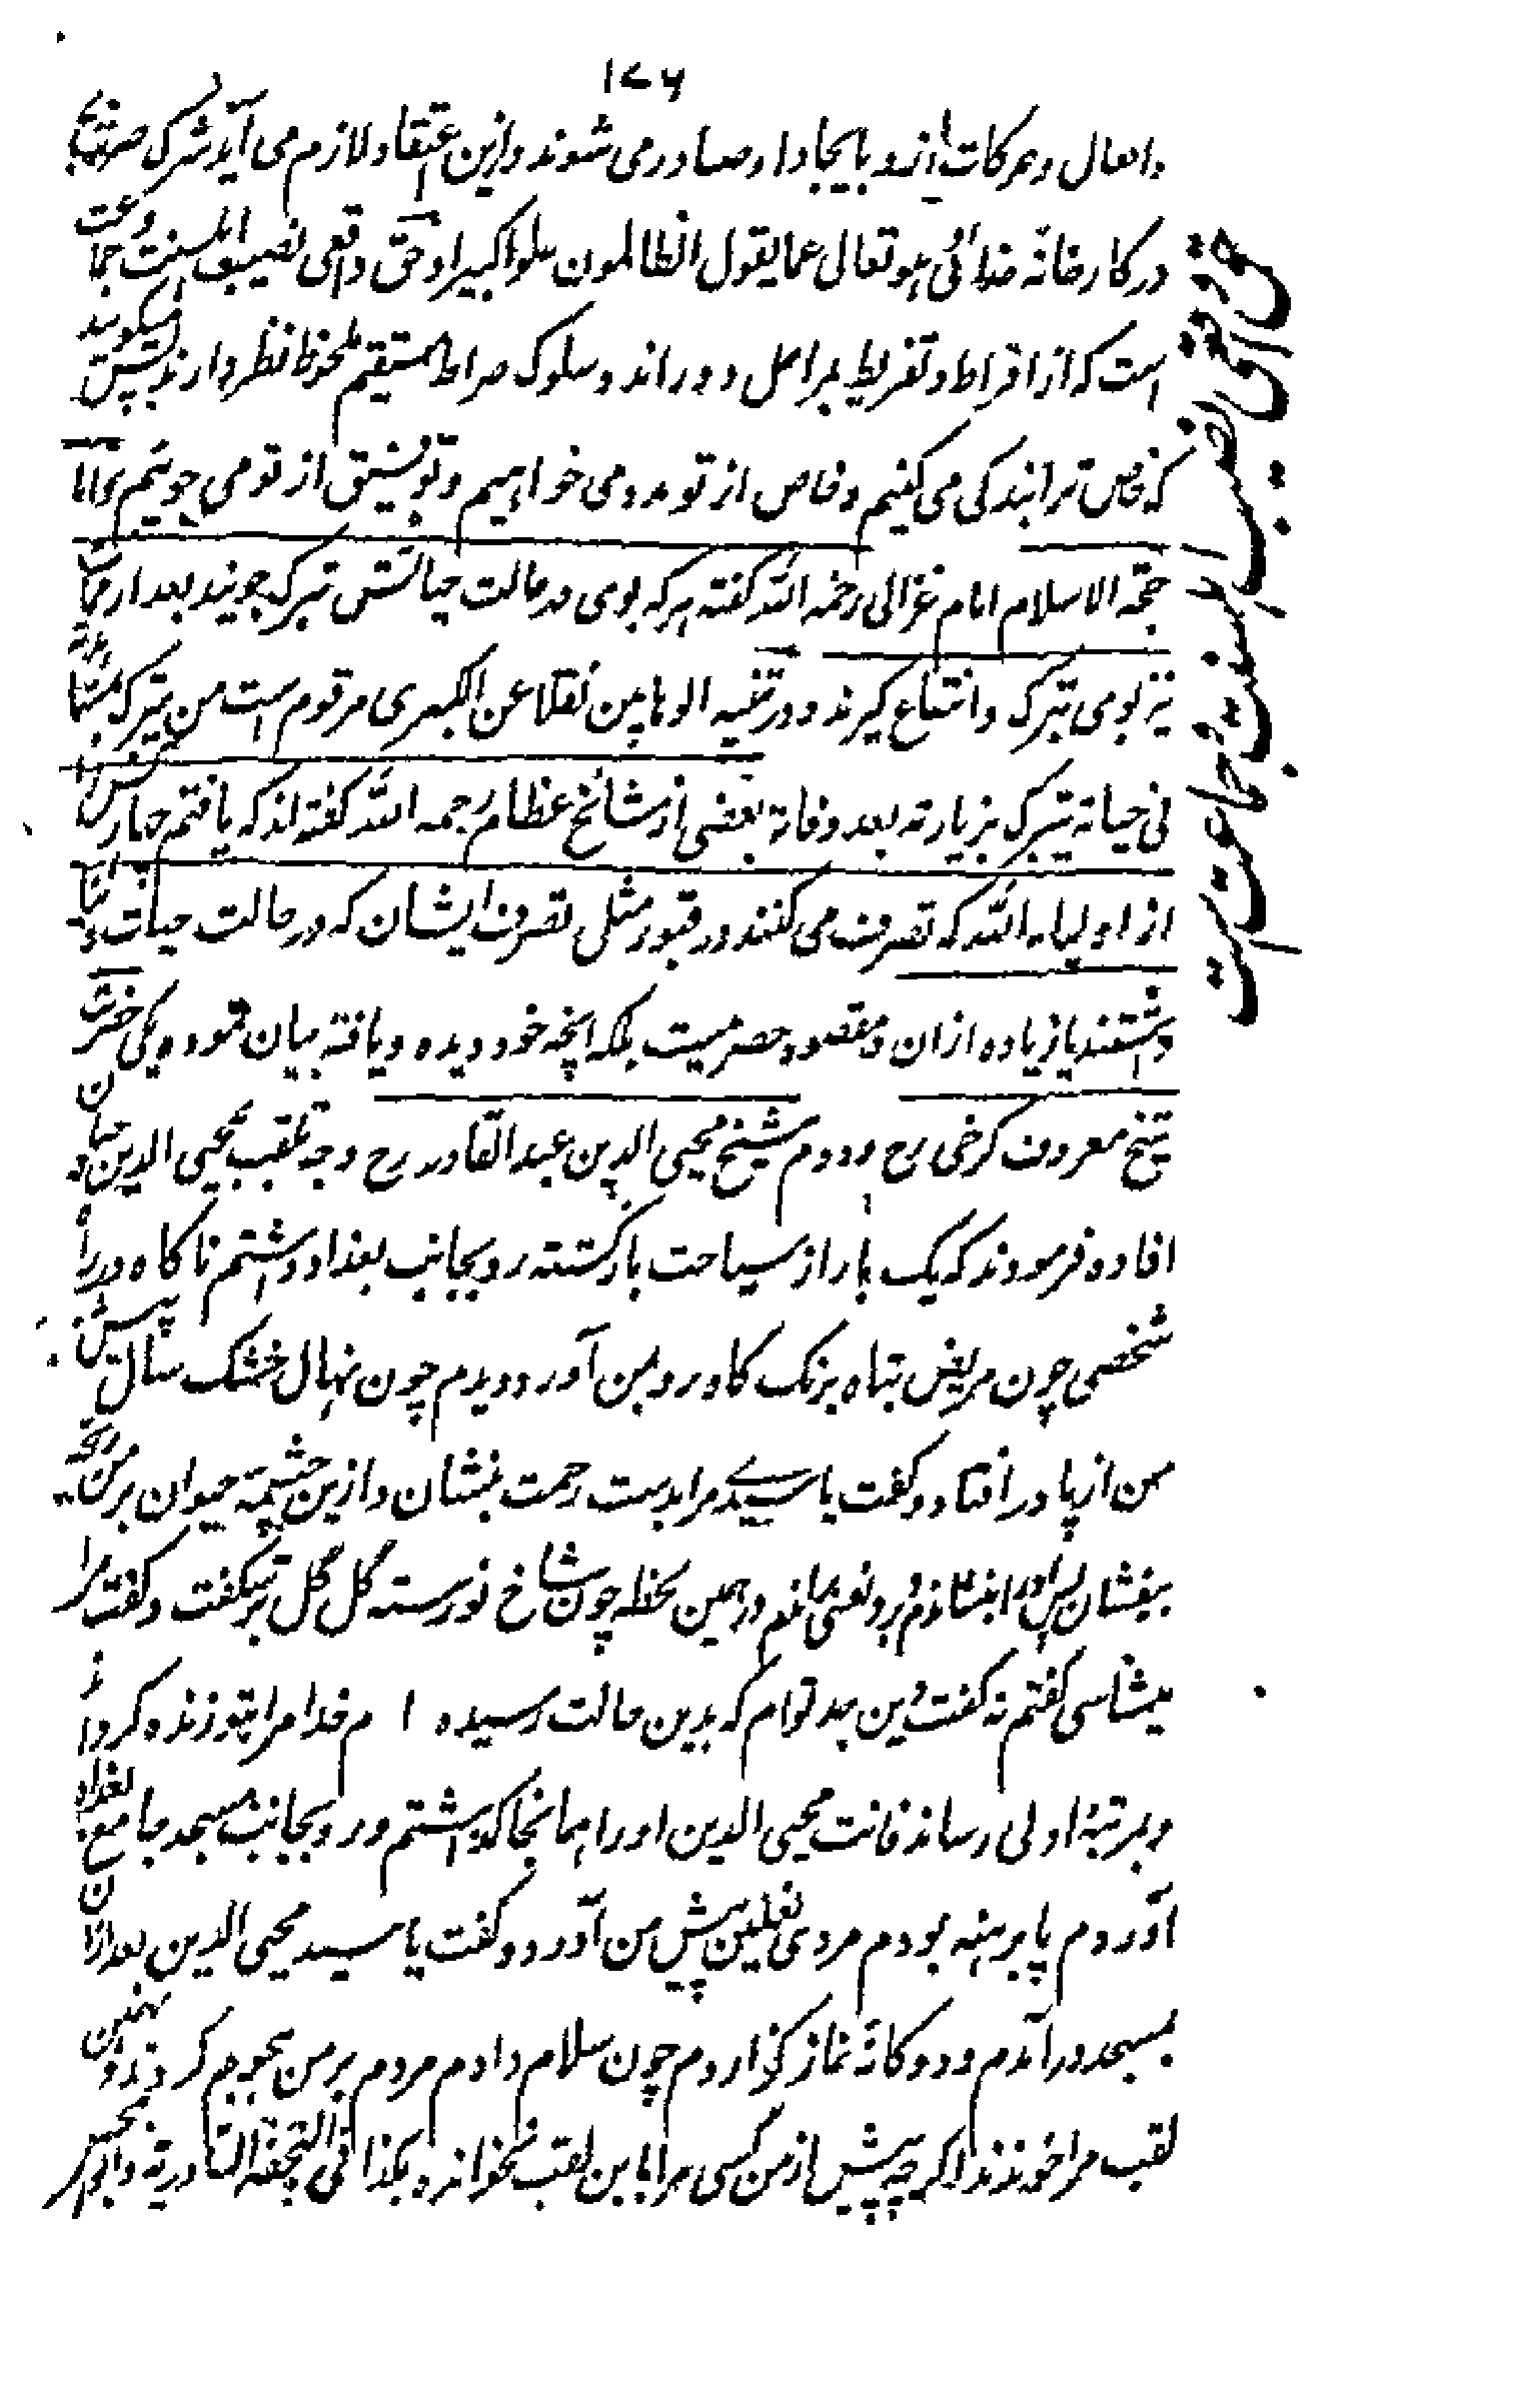 ۱۷۶
افعال و حرکات از و بایجاد او صادر می شوند و ازین اعتقاد لازم می آید شرک صریح
در کارخانهٔ خدائی هو تعالی عما یقول الظالمون علوا کبیرا و حق واقعی نصیب اهلسنت و جماعت
است که از افراط و تفریط بمراحل دور اند و سلوک صراط المستقیم ملحوظ نظر دارند پس میگویند
که خاص ترا بندکی می کنیم و خاص از تو مدد می خواهیم و توفیق از تو می جوئیم
حجة الاسلام امام غزالی رحمه الله گفته هر که بوی در حالت حیاتش تبرک جویند بعد از
نیز بوی تبرک و انتفاع گیرند و در تنبیه الوهابین نقلا عن الکبری مرقوم است من یتبرک
فی حیاته یتبرک بزیارته بعد وفاته بعضی از مشائخ عظام رحمه الله گفته اند که یافتم چهار کس را
از اولیاء الله که تصرف می کنند در قبور مثل تصرف ایشان که در حالت حیات
داشتند یا زیاده از ان و مقصود حصر نیست بلکه انچه خود دیده و یافته بیان نموده یکی حضرت
شیخ معروف کرخی رح و دوم شیخ محیی الدین عبد القادر رح وجه تلقب بمحیی الدین
افاده فرمودند که یک بار از سیاحت بازگشته رو بجانب بغداد داشتم ناگاه در راه
شخصی چون مریض تباه برنگ کاه رو بمن آورد دیدم چون نهال خشک سال پیش
من از پا در افتاد و گفت یا سیدی مرا بدست رحمت بنشان و ازین چشمه حیوان بر من
بیفشان پس او را بنشاندم و بر و نفس راندم در همین لحظه چون شاخ نورسته گل گل برشگفت و گفت مرا
میشناسی گفتم نه گفت دین جد توام که بدین حالت رسیده ام خدا مرا بتو زنده کرد
و بمرتبهٔ اولی رساند فانت محیی الدین او را همانجا گذاشتم و رو بجانب مسجد جامع بغداد
آوردم پا برهنه بودم مردی نعلین پیش من آورد و گفت یا سید محیی الدین بعد ازان
بمسجد در آمدم و دوگانهٔ نماز گزاردم چون سلام دادم مردم بر من هجوم کردند و بهمین
لقب مرا خواندند اگرچه پیش از من کسی مرا باین لقب نخوانده هکذا فی التحفة القادریة